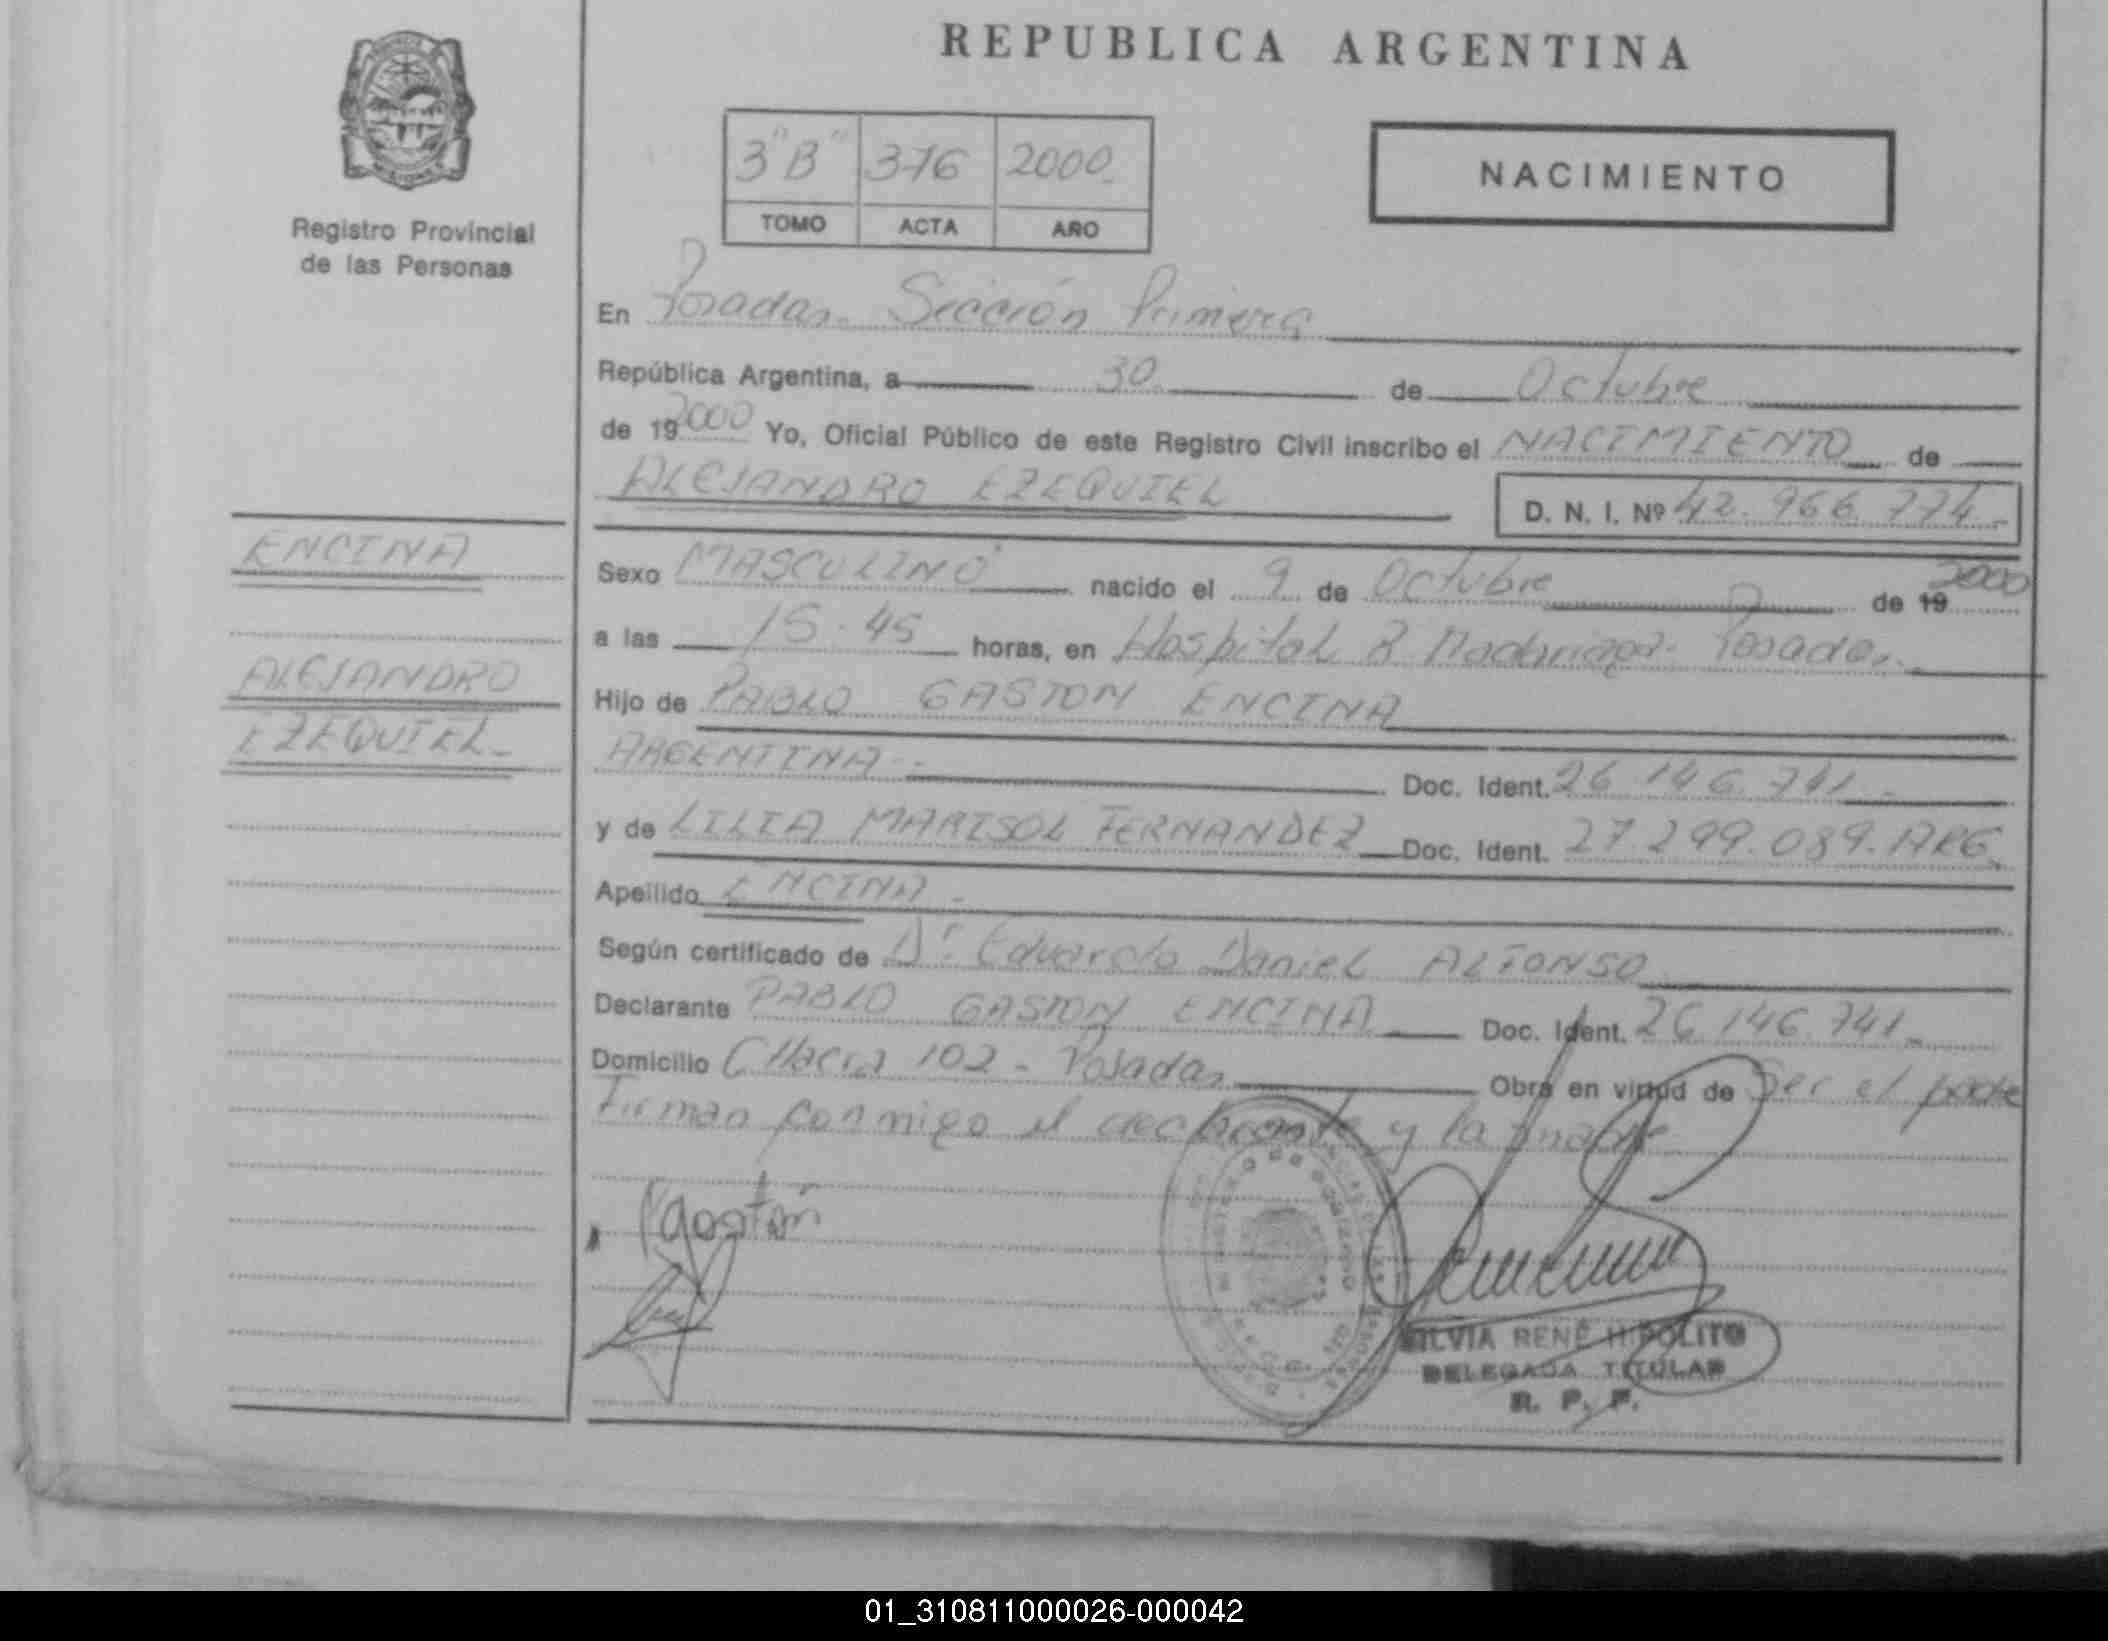 REPUBLICA ARGENTINA
3"B" 376 2000
TOMO ACTA AÑO
NACIMIENTO
Registro Provincial
de las Personas
En Posadas. Sección Primera
República Argentina, a 30 de Octubre
de 19 2000 Yo, Oficial Público de este Registro Civil inscribo el NACIMIENTO de
ALEJANDRO EZEQUIEL D. N. I. Nº 42.966.774.-
ENCINA
ALEJANDRO
EZEQUIEL-
Sexo MASCULINO nacido el 9 de Octubre de 19 2000
a las 15.45 horas, en Hospital R Madariaga. Posadas.
Hijo de PABLO GASTON ENCINA
ARGENTINA.- Doc. Ident. 26.146.741.-
y de LILIA MARISOL FERNANDEZ Doc. Ident. 27.299.089.ARG.
Apellido ENCINA.-
Según certificado de Dr. Eduardo Daniel ALFONSO
Declarante PABLO GASTON ENCINA Doc. Ident. 26.146.741.-
Domicilio 102 - Posadas Obra en virtud de Ser el padre
Firman conmigo el declarante y la madre
Gastón
SILVIA RENÉ HIPOLITO
DELEGADA TITULAR
R. P. P.
01_310811000026-000042